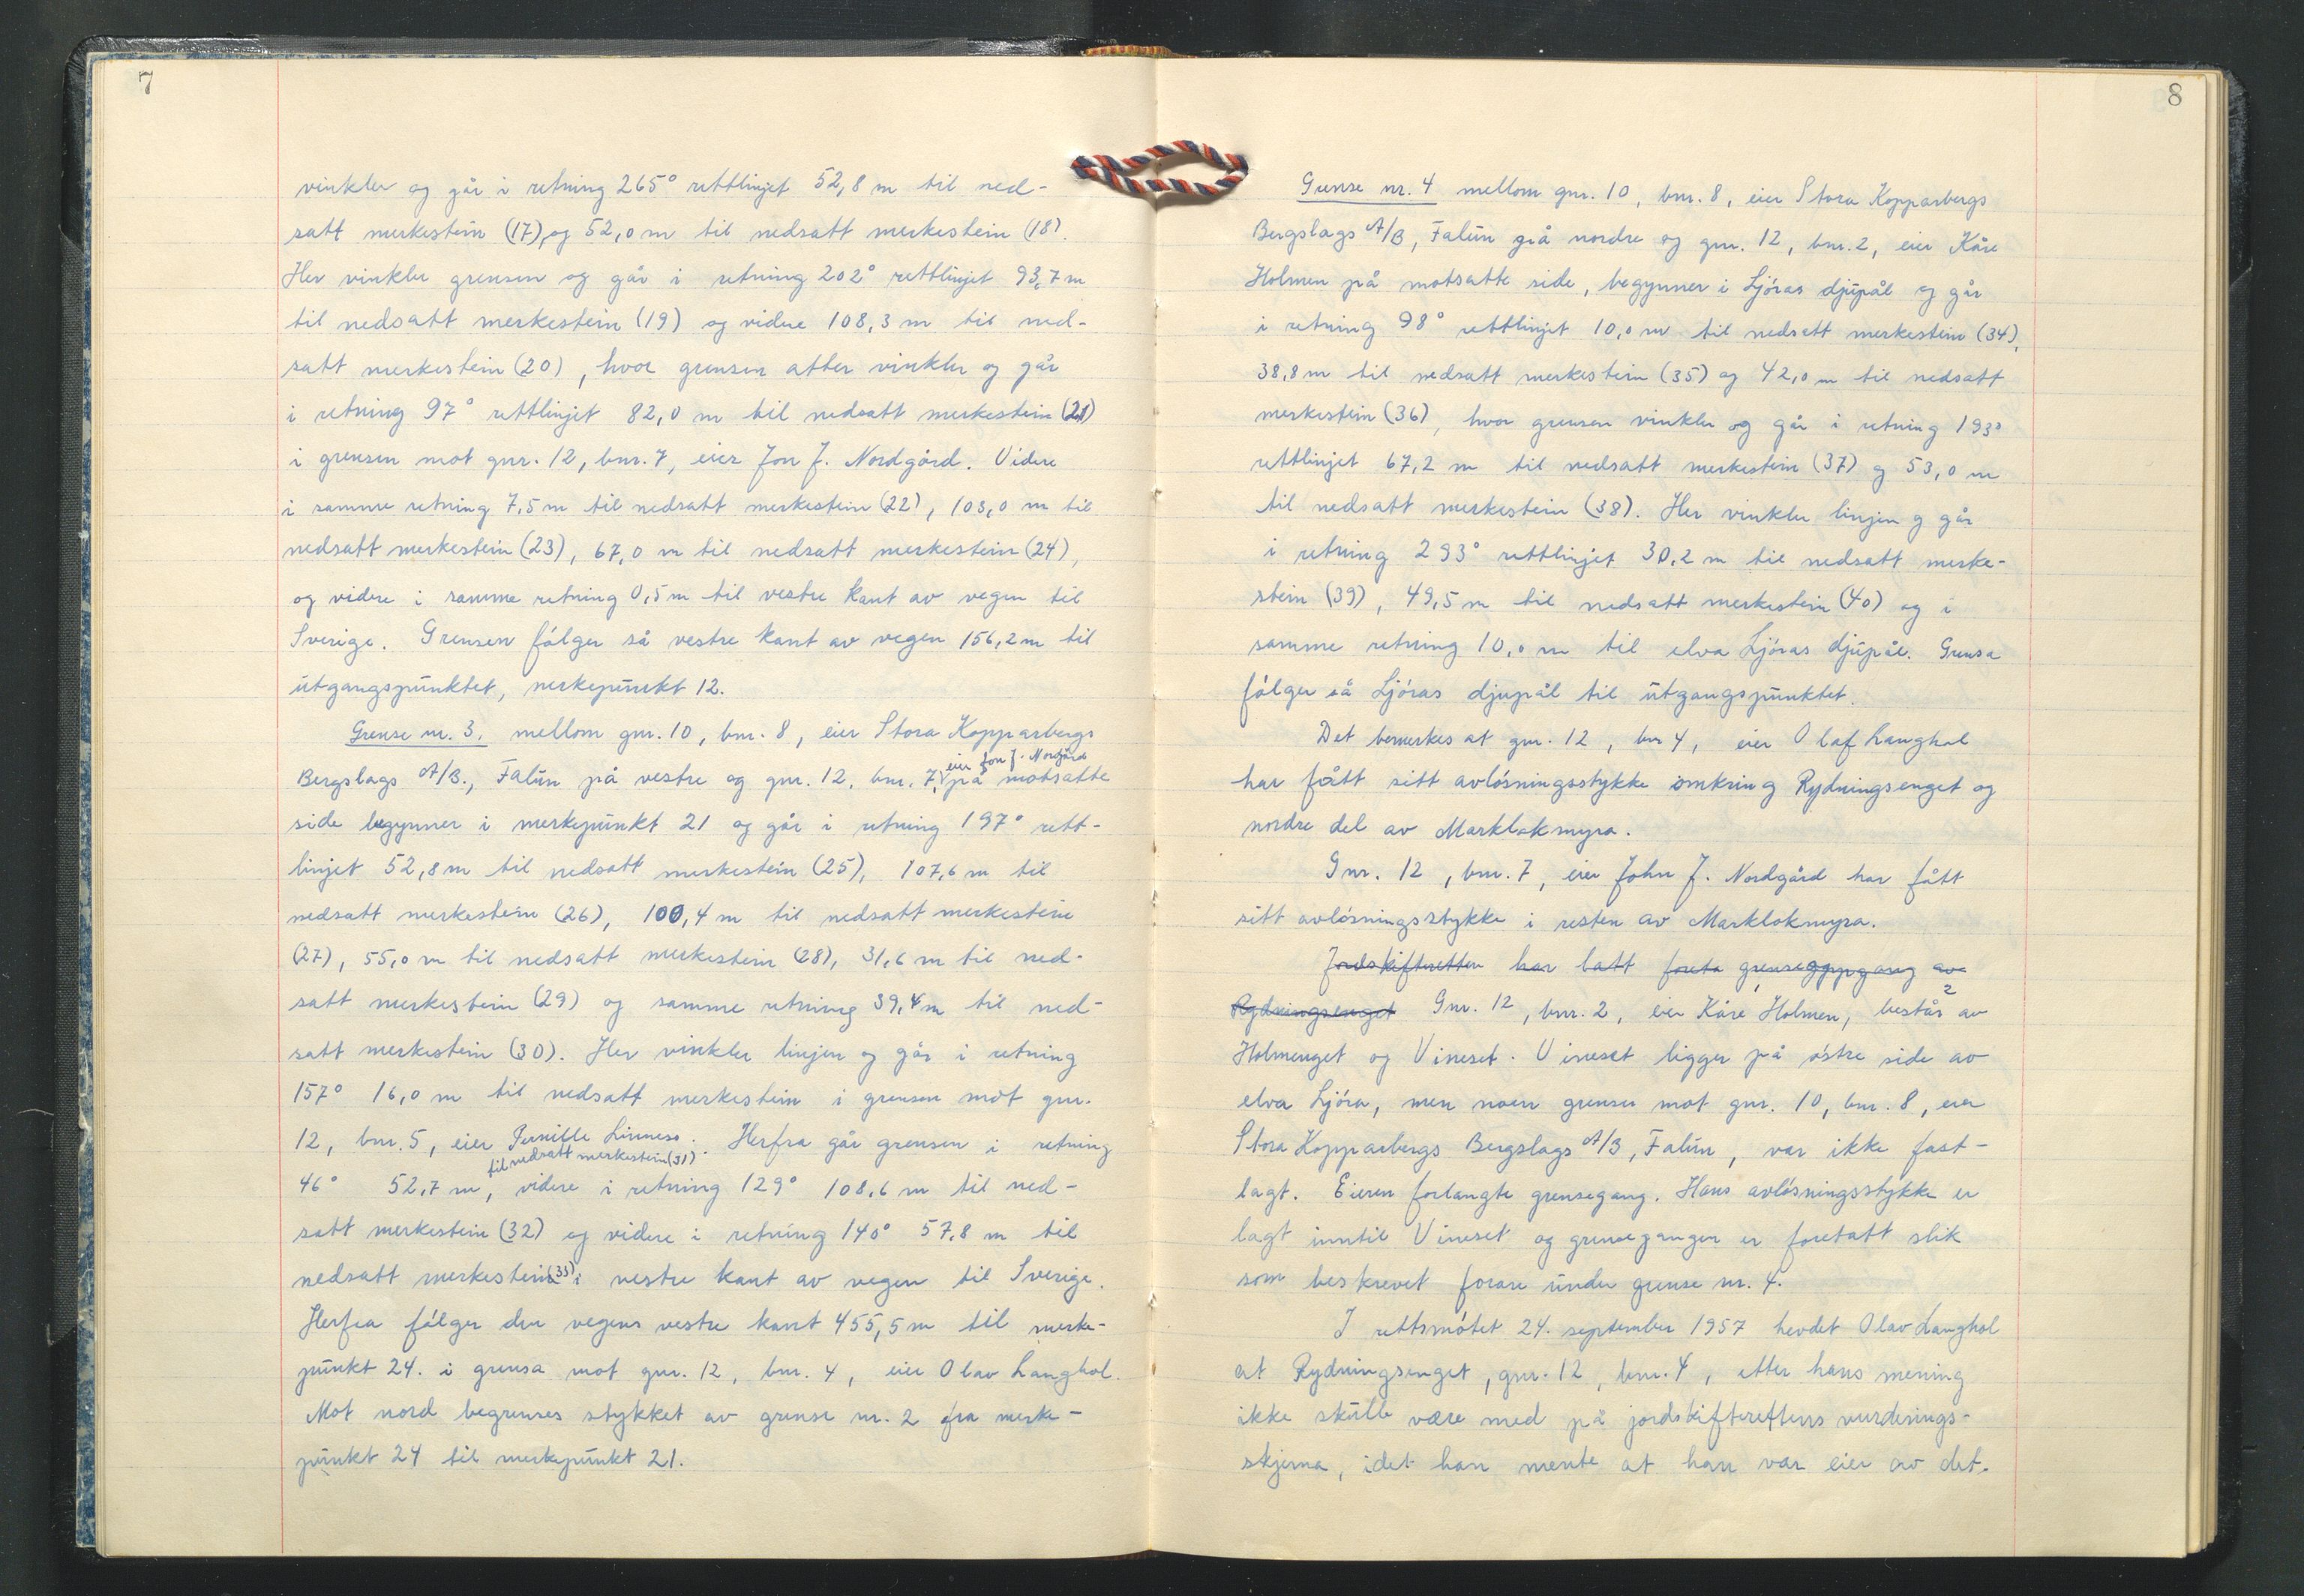 7
vinkler og går i retning 265° rettlinjet 52,8 m til ned-
satt merkestein (17), og 52,0 m til nedsatt merkestein (18).
Her vinkler grensen og går i retning 202° rettlinjet 93,7 m
til nedsatt merkestein (19) og videre 108,3 m til ned-
satt merkestein (20), hvor grensen atter vinkler og går
i retning 97° rettlinjet 82,0 m til nedsatt merkestein (21)
i grensen mot gnr. 12, bnr. 7, eier Jon J. Nordgård. Videre
i samme retning 7,5 m til nedsatt merkestein (22), 103,0 m til
nedsatt merkestein (23), 67,0 m til nedsatt merkestein (24),
og videre i samme retning 0,5 m til vestre kant av vegen til
Sverige. Grensen følger så vestre kant av vegen 156,2 m til
utgangspunktet, merkepunkt 12.
Grense nr. 3. mellom gnr. 10, bnr. 8, eier Stora Kopparbergs
Bergslags A/B., Falun på vestre og gnr. 12, bnr. 7, eier Jon J. Nordgård på motsatte
side begynner i merkepunkt 21 og går i retning 197° rett-
linjet 52,8 m til nedsatt merkestein (25), 107,6 m til
nedsatt merkestein (26), 100,4 m til nedsatt merkestein
(27), 55,0 m til nedsatt merkestein (28), 31,6 m til ned-
satt merkestein (29) og samme retning 39,4 m til ned-
satt merkestein (30). Her vinkler linjen og går i retning
157° 16,0 m til nedsatt merkestein i grensen mot gnr.
12, bnr. 5, eier Pernille Linneso. Herfra går grensen i retning
46° 52,7 m til nedsatt merkestein (31), videre i retning 129° 108,6 m til ned-
satt merkestein (32) og videre i retning 140° 57,8 m til
nedsatt merkestein (33) i vestre kant av vegen til Sverige.
Herfra følger den vegens vestre kant 455,5 m til merke-
punkt 24. i grensa mot gnr. 12, bnr. 4, eier Olav Langhol.
Mot nord begrenses stykket av grense nr. 2 fra merke-
punkt 24 til merkepunkt 21.
8
Grense nr. 4 mellom gnr. 10, bnr. 8, eier Stora Kopparbergs
Bergslags A/B, Falun på nordre og gnr. 12, bnr. 2, eier Kåre
Holmen på motsatte side, begynner i Ljøras djupål og går
i retning 98° rettlinjet 10,0 m til nedsatt merkestein (34),
38,8 m til nedsatt merkestein (35) og 42,0 m til nedsatt
merkestein (36), hvor grensen vinkler og går i retning 193°
rettlinjet 67,2 m til nedsatt merkestein (37) og 53,0 m
til nedsatt merkestein (38). Her vinkler linjen og går
i retning 293° rettlinjet 30,2 m til nedsatt merke-
stein (39), 49,5 m til nedsatt merkestein (40) og i
samme retning 10,0 m til elva Ljøras djupål. Grensa
følger så Ljøras djupål til utgangspunktet.
Det bemerkes at gnr. 12, bnr 4, eier Olaf Langhol
har fått sitt avløsningsstykke omkring Rydningsenget og
nordre del av Marklokmyra.
Gnr. 12, bnr. 7, eier John J. Nordgård har fått
sitt avløsningsstykke i resten av Marklokmyra.
Jordskifteretten har latt foreta grenseoppgang av
Rydningsenget Gnr. 12, bnr. 2, eier Kåre Holmen, består av 2
Holmenget og Vineset. Vineset ligger på østre side av
elva Ljøra, men noen grenser mot gnr. 10, bnr. 8, eier
Stora Kopparbergs Bergslags A/B, Falun, var ikke fast-
lagt. Eieren forlangte grensegang. Hans avløsningsstykke er
lagt inntil Vineset og grensegangen er foretatt slik
som beskrevet forare under grense nr. 4.
I rettsmøtet 24. september 1957 hevdet Olav Langhol
at Rydningsenget, gnr. 12, bnr. 4, etter hans mening
ikke skulle være med på jordskifterettens vurderings-
skjema, idet han mente at han var eier av det.